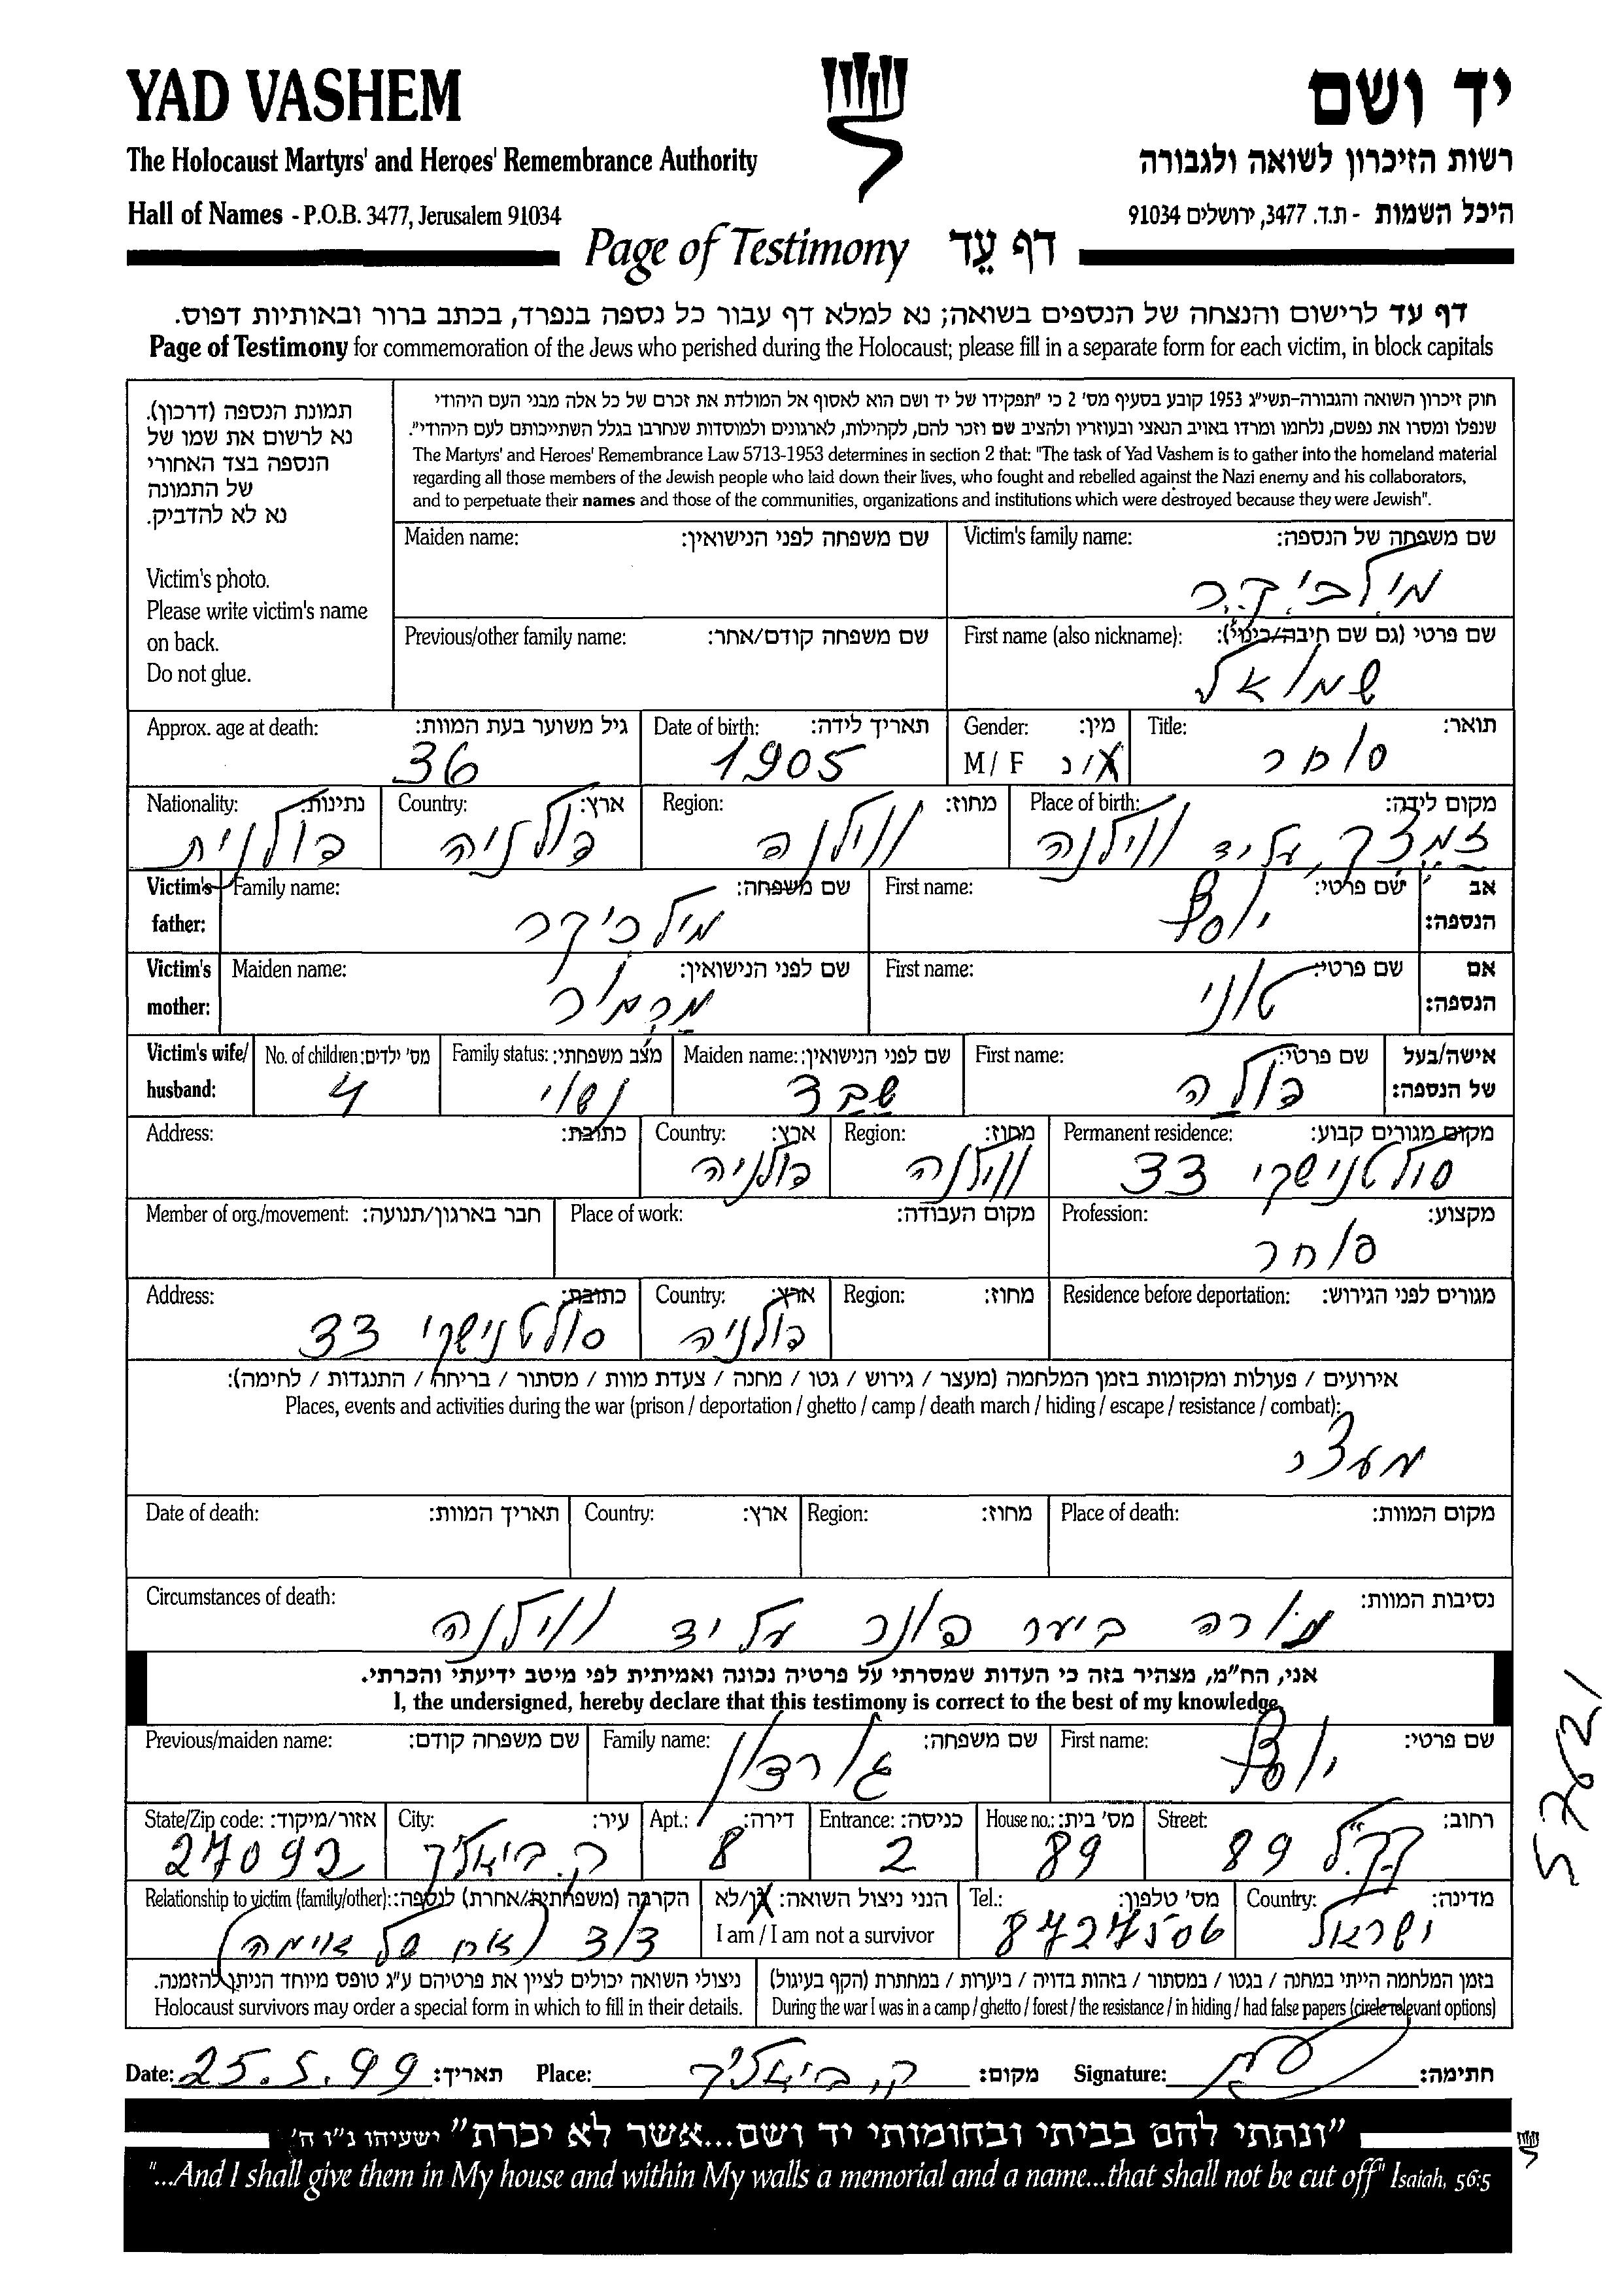 YAD VASHEM
יד ושם
The Holocaust Martyrs' and Heroes' Remembrance Authority
רשות הזיכרון לשואה ולגבורה
Hall of Names - P.O.B. 3477, Jerusalem 91034
היכל השמות - ת.ד. 3477, ירושלים 91034
Page of Testimony דף עֵד
דף עד לרישום והנצחה של הנספים בשואה; נא למלא דף עבור כל נספה בנפרד, בכתב ברור ובאותיות דפוס.
Page of Testimony for commemoration of the Jews who perished during the Holocaust; please fill in a separate form for each victim, in block capitals
תמונת הנספה (דרכון).
נא לרשום את שמו של
הנספה בצד האחורי
של התמונה
נא לא להדביק.
Victim's photo.
Please write victim's name
on back.
Do not glue.
חוק זיכרון השואה והגבורה-תשי"ג 1953 קובע בסעיף מס' 2 כי "תפקידו של יד ושם הוא לאסוף אל המולדת את זכרם של כל אלה מבני העם היהודי
שנפלו ומסרו את נפשם, נלחמו ומרדו באויב הנאצי ובעוזריו ולהציב שם וזכר להם, לקהילות, לארגונים ולמוסדות שנחרבו בגלל השתייכותם לעם היהודי".
The Martyrs' and Heroes' Remembrance Law 5713-1953 determines in section 2 that: "The task of Yad Vashem is to gather into the homeland material
regarding all those members of the Jewish people who laid down their lives, who fought and rebelled against the Nazi enemy and his collaborators,
and to perpetuate their names and those of the communities, organizations and institutions which were destroyed because they were Jewish".
Victim's family name: שם משפחה של הנספה:
מילביקר
Maiden name: שם משפחה לפני הנישואין:
First name (also nickname): שם פרטי (גם שם חיבה/כינוי):
שמואל
Previous/other family name: שם משפחה קודם/אחר:
Title: תואר:
סוחר
Gender: מין:
M / F ז/נ
Date of birth: תאריך לידה:
1905
Approx. age at death: גיל משוער בעת המוות:
36
Place of birth: מקום לידה:
על יד ווילנה
Region: מחוז:
ווילנה
Country: ארץ:
פולניה
Nationality: נתינות:
פולנית
Victim's father: אב הנספה:
First name: שם פרטי:
יוסף
Family name: שם משפחה:
מילביקר
Victim's mother: אם הנספה:
First name: שם פרטי:
טוני
Maiden name: שם לפני הנישואין:
Victim's wife/ husband: אישה/בעל של הנספה:
First name: שם פרטי:
פולה
Maiden name: שם לפני הנישואין:
שבד
Family status: מצב משפחתי:
נשוי
No. of children: מס' ילדים:
4
Permanent residence: מקום מגורים קבוע:
סולטנישקי 33
Region: מחוז:
ווילנה
Country: ארץ:
פולניה
Address: כתובת:
Profession: מקצוע:
סוחר
Place of work: מקום העבודה:
Member of org./movement: חבר בארגון/תנועה:
Residence before deportation: מגורים לפני הגירוש:
Region: מחוז:
Country: ארץ:
פולניה
Address: כתובת:
סולטנישקי 33
אירועים / פעולות ומקומות בזמן המלחמה (מעצר / גירוש / גטו / מחנה / צעדת מוות / מסתור / בריחה / התנגדות / לחימה):
Places, events and activities during the war (prison / deportation / ghetto / camp / death march / hiding / escape / resistance / combat):
מעצר
Place of death: מקום המוות:
Region: מחוז:
Country: ארץ:
Date of death: תאריך המוות:
Circumstances of death: נסיבות המוות:
נורה ביער פונר על יד ווילנה
אני, הח"מ, מצהיר בזה כי העדות שמסרתי על פרטיה נכונה ואמיתית לפי מיטב ידיעתי והכרתי.
I, the undersigned, hereby declare that this testimony is correct to the best of my knowledge.
First name: שם פרטי:
יוסף
Family name: שם משפחה:
גורדון
Previous/maiden name: שם משפחה קודם:
Street: רחוב:
קק"ל 89
House no.: מס' בית:
89
Entrance: כניסה:
2
Apt.: דירה:
8
City: עיר:
ק. ביאליק
State/Zip code: אזור/מיקוד:
27092
Country: מדינה:
ישראל
Tel.: מס' טלפון:
8727506
הנני ניצול השואה: כן/לא
I am / I am not a survivor
Relationship to victim (family/other): הקרבה (משפחתית/אחרת) לנספה:
דוד (אח של אימה)
בזמן המלחמה הייתי במחנה / בגטו / במסתור / בזהות בדויה / ביערות / במחתרת (הקף בעיגול)
During the war I was in a camp / ghetto / forest / the resistance / in hiding / had false papers (circle relevant options)
ניצולי השואה יכולים לציין את פרטיהם ע"ג טופס מיוחד הניתן להזמנה.
Holocaust survivors may order a special form in which to fill in their details.
Date: 25.5.99 תאריך:
Place: ק. ביאליק מקום:
Signature: חתימה:
"ונתתי להם בביתי ובחומותי יד ושם...אשר לא יכרת" ישעיהו נ"ו ה'
"...And I shall give them in My house and within My walls a memorial and a name...that shall not be cut off" Isaiah, 56:5